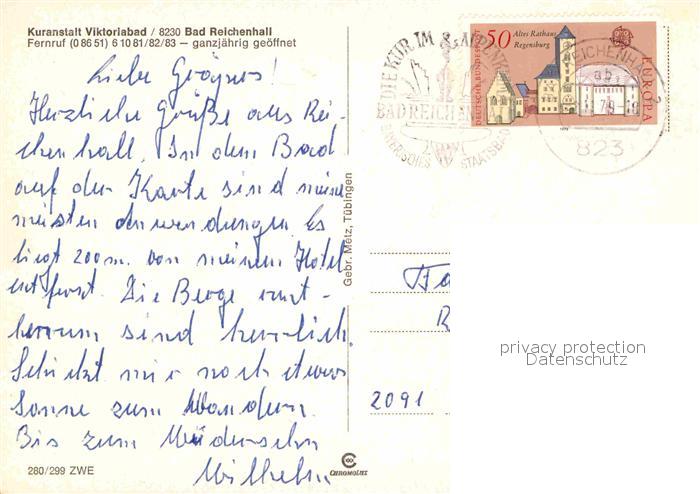 Kuranstalt Viktoriabad / 8230 Bad Reichenhall
Fernruf (0 86 51) 6 10 81/82/83 – ganzjährig geöffnet
Liebe
Herzliche Grüße aus Rei-
chenhall. In dem Bad
auf der Karte sind meine
meisten Anwendungen Es
liegt 200m. von meinem Hotel
entfernt. Die Berge rund-
herrum sind herrlich.
Schickt mir noch etwas
Sonne zum Wandern.
Bis zum Wiedersehn
Wilhelm
280/299 ZWE
CHROMOLUX
Gebr. Metz, Tübingen
DIE KUR IM ALPENKLIMA
BAD REICHEN
BAYERISCHES STAATSBAD
50 Altes Rathaus
Regensburg
DEUTSCHE BUNDESPOST
EUROPA
CEPT
REICHENHALL
ab
823
2091
privacy protection
Datenschutz